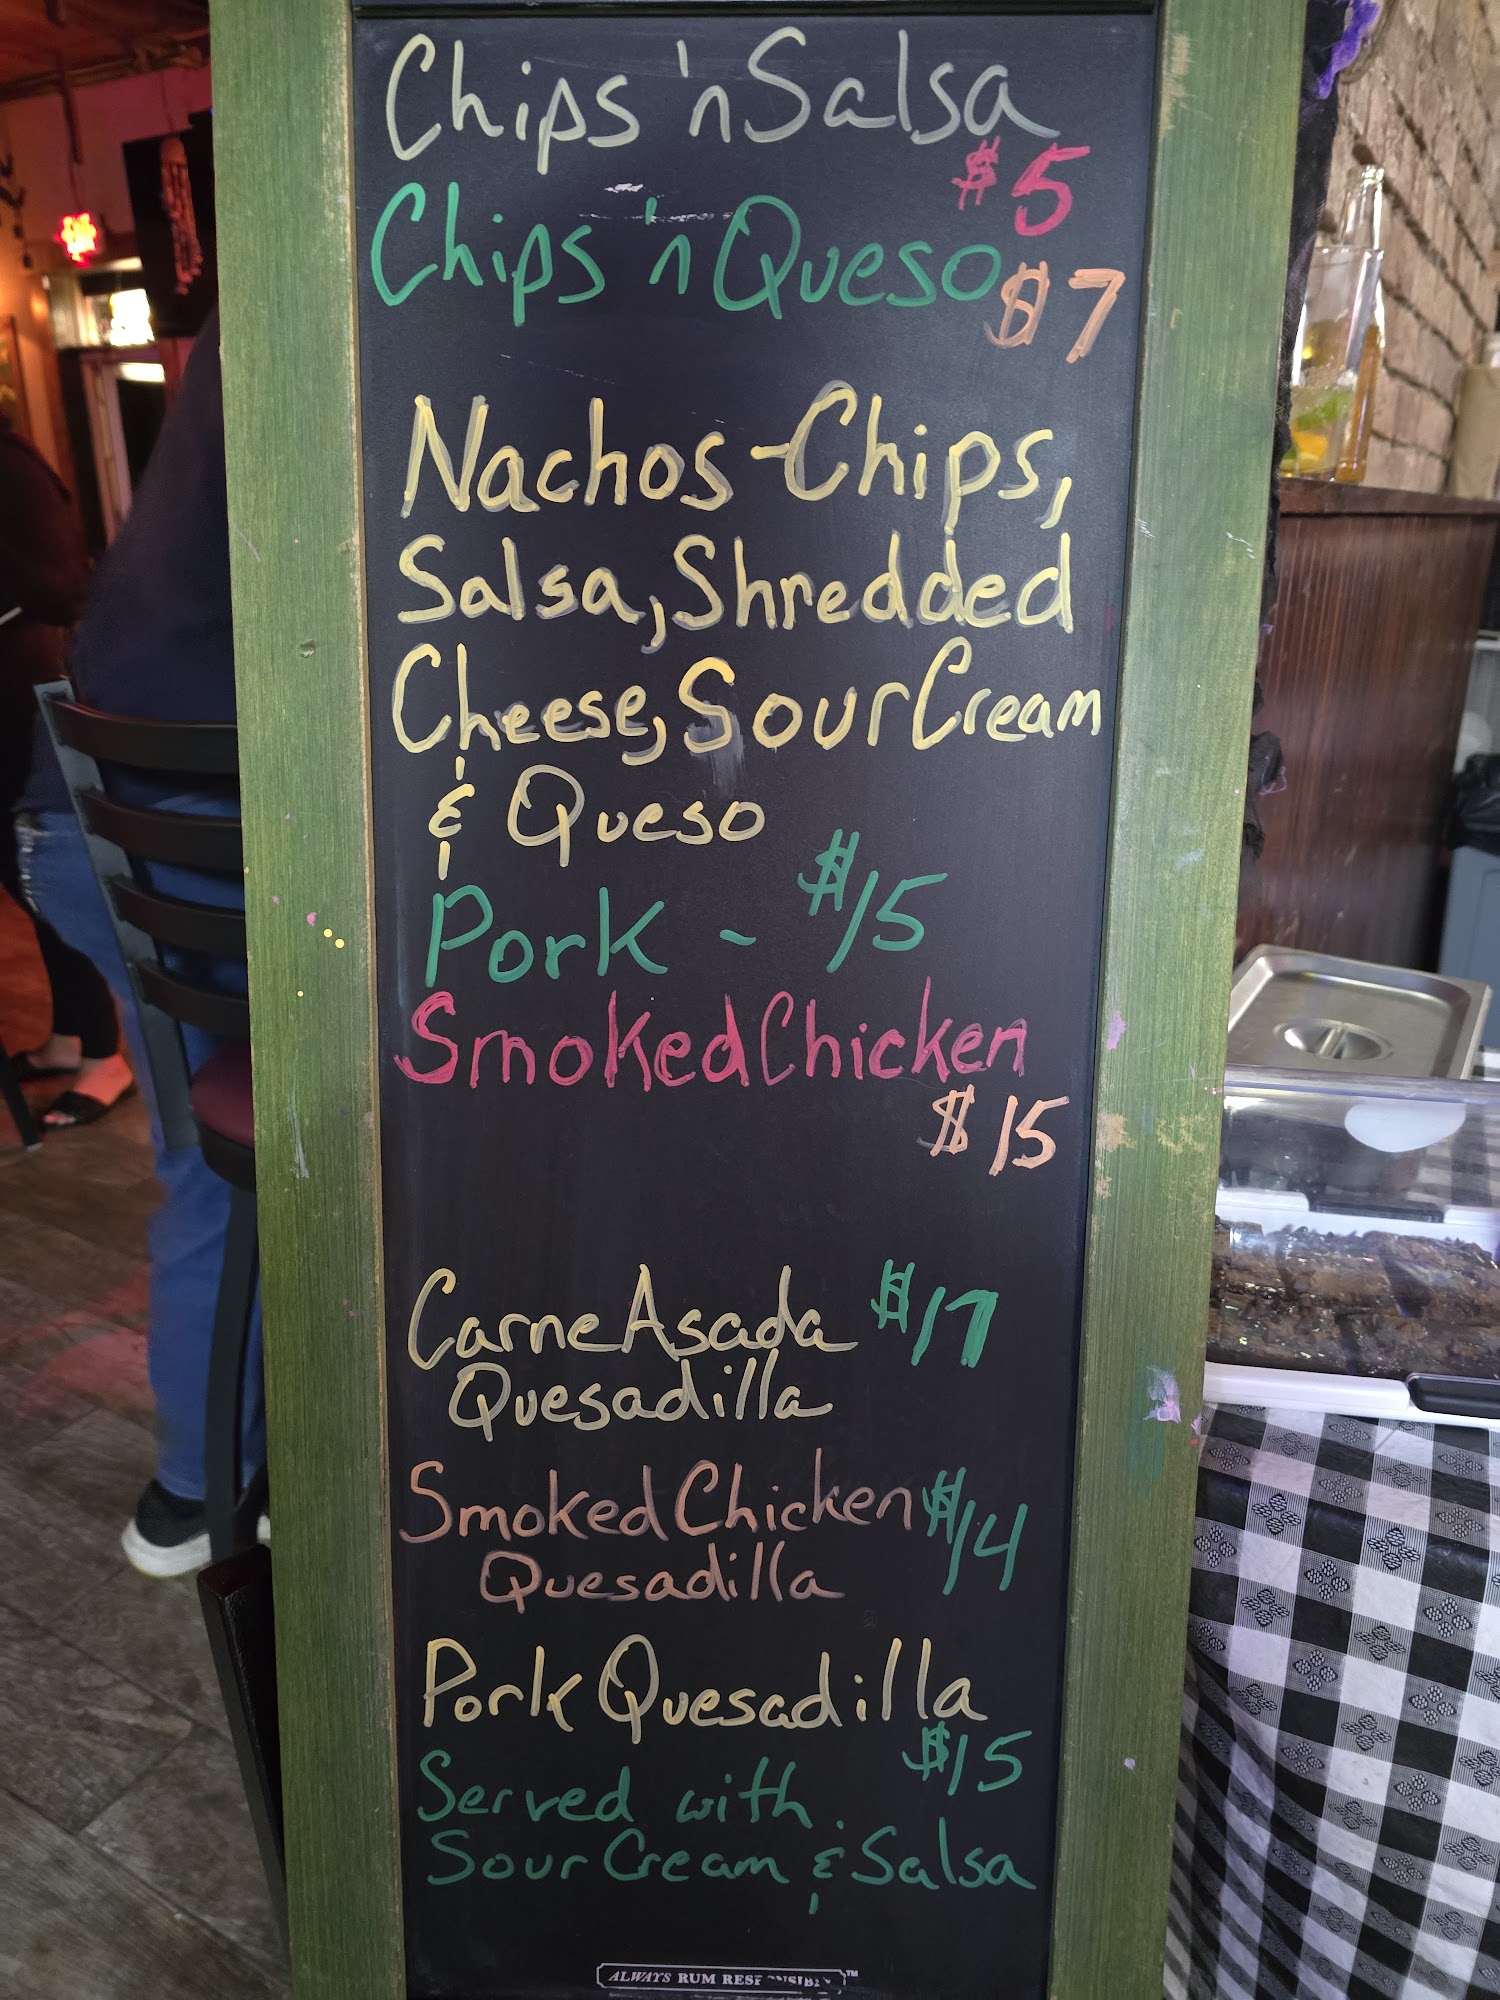 Chips 'n Salsa
$5
Chips 'n Queso
$7
Nachos - Chips,
Salsa, Shredded
Cheese, Sour Cream
& Queso
Pork - $15
Smoked Chicken
$15
Carne Asada $17
Quesadilla
Smoked Chicken $14
Quesadilla
Pork Quesadilla
$15
Served with
Sour Cream & Salsa
ALWAYS RUM RESPONSIBLY™